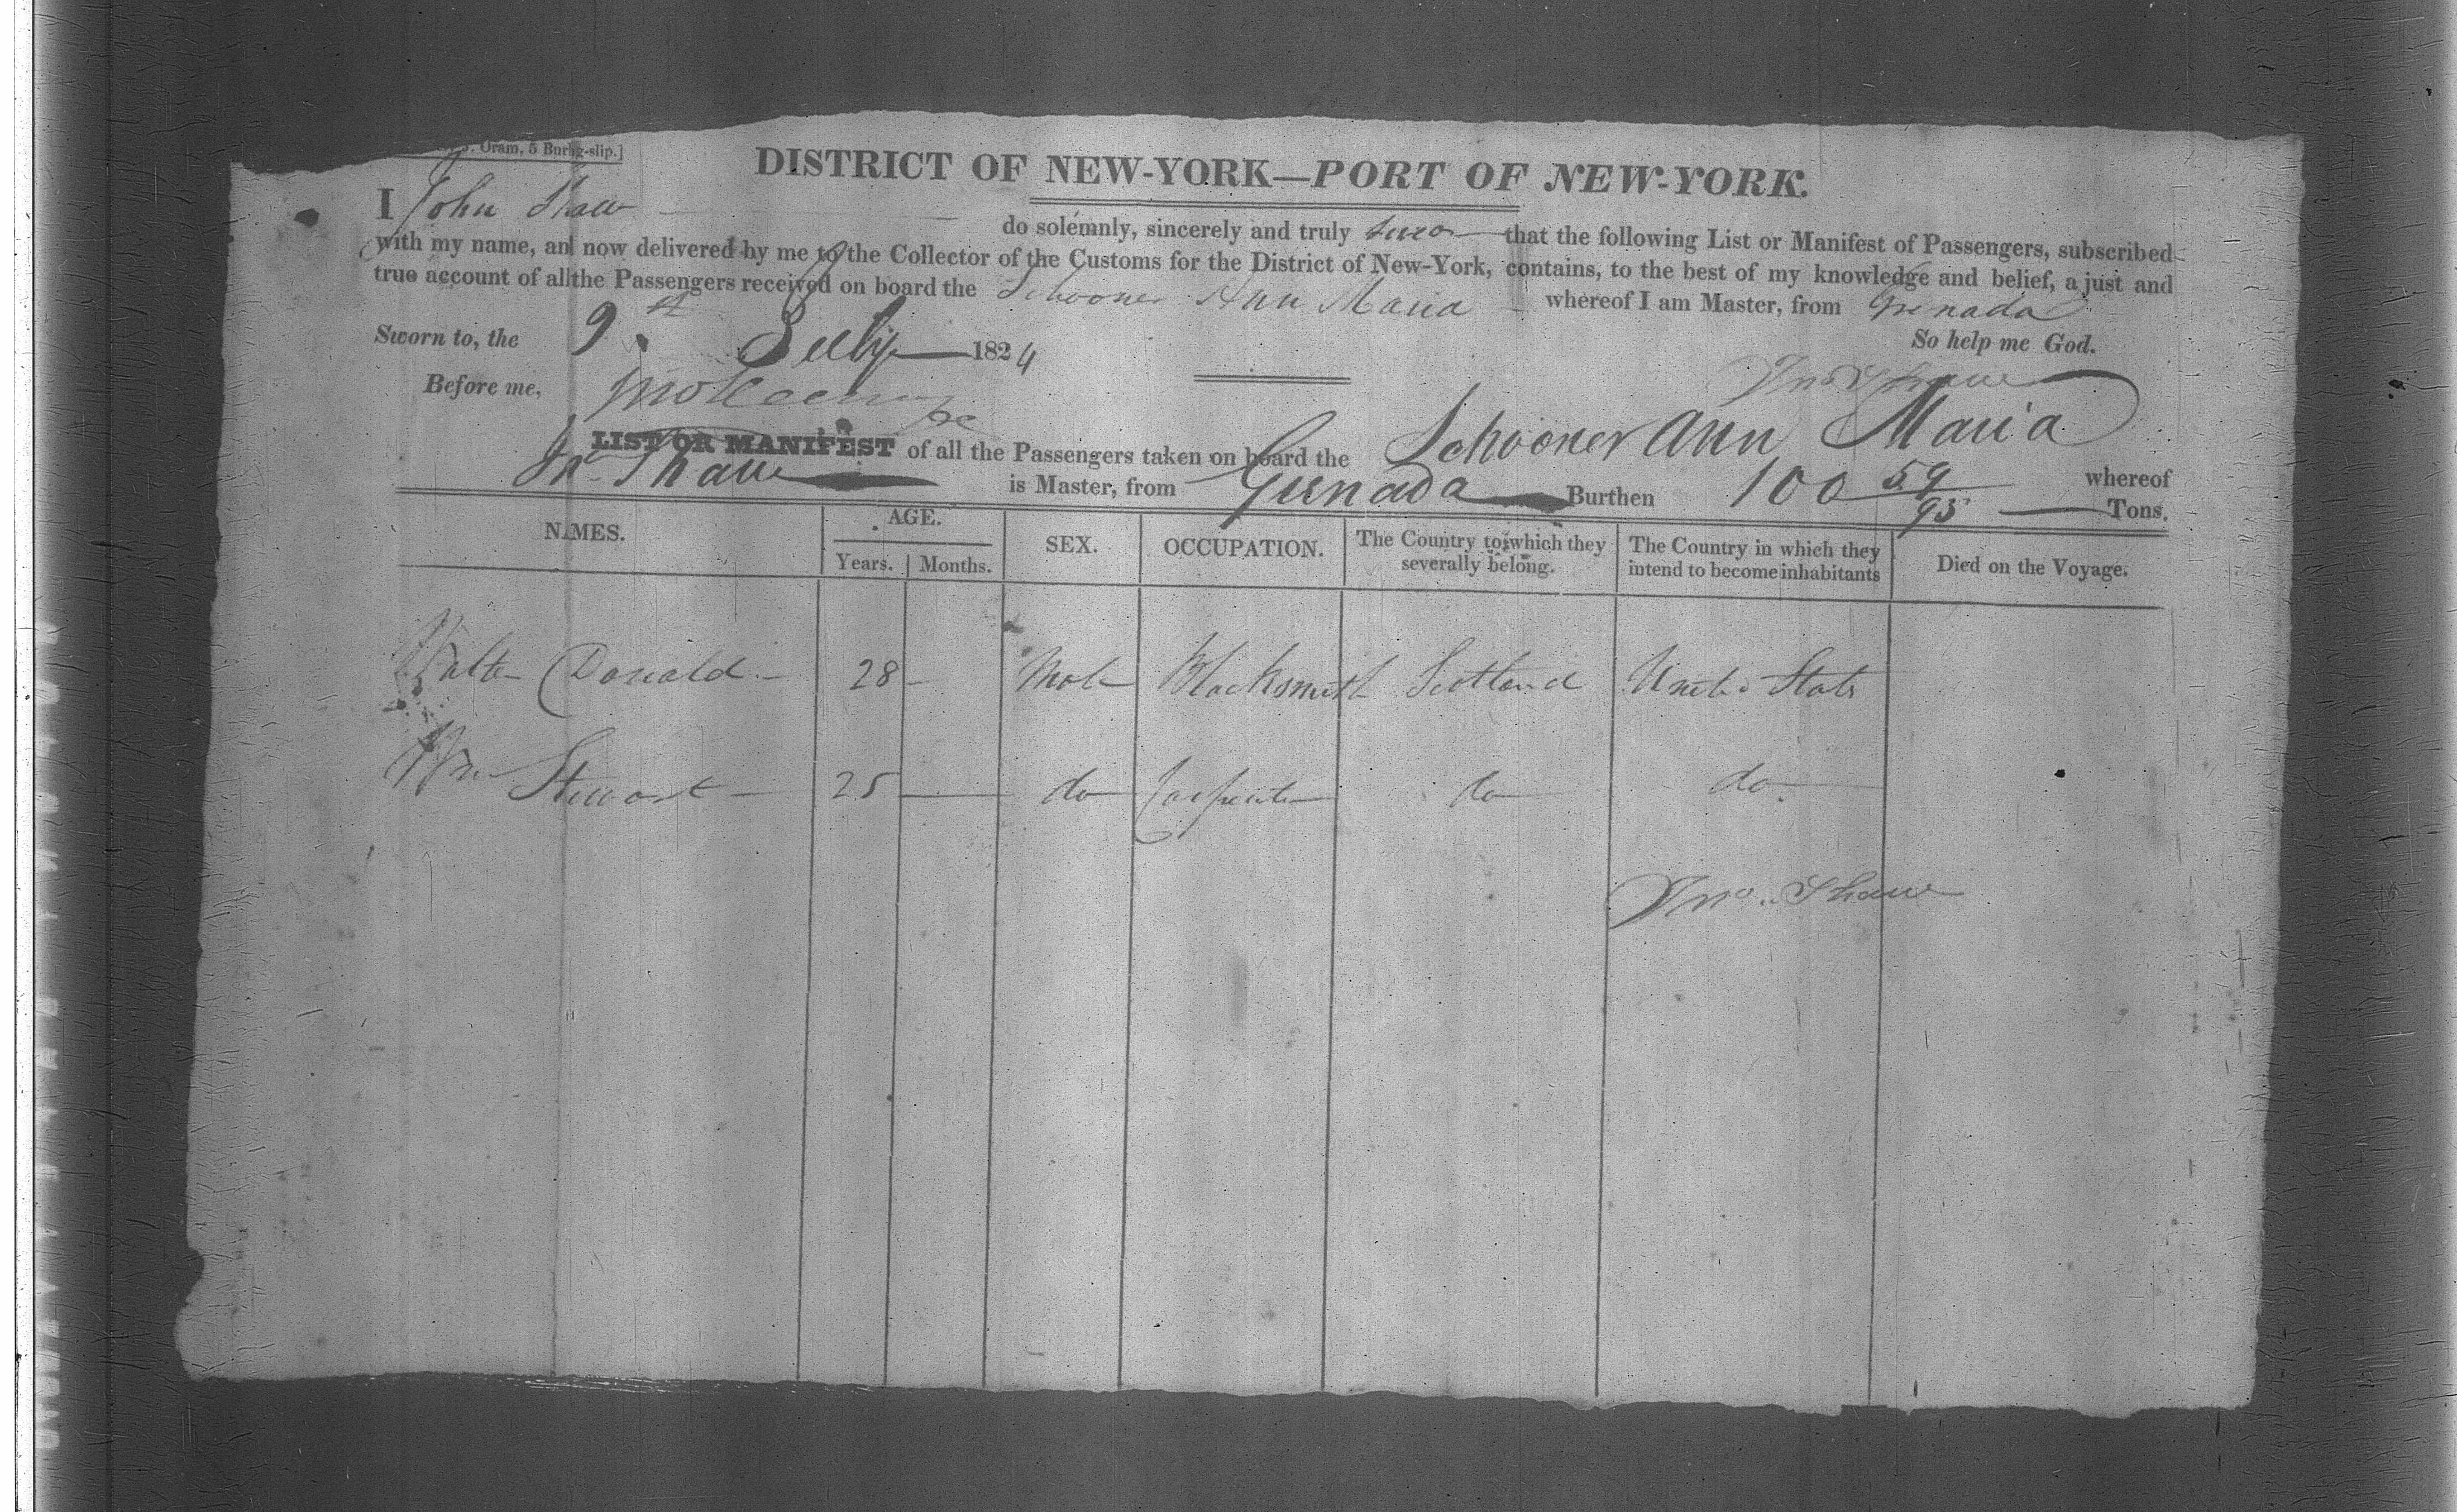 J. Oram, 5 Burling-slip.]
DISTRICT OF NEW-YORK—PORT OF NEW-YORK.
I John Shaw do solemnly, sincerely and truly swear that the following List or Manifest of Passengers, subscribed
with my name, and now delivered by me to the Collector of the Customs for the District of New-York, contains, to the best of my knowledge and belief, a just and
true account of all the Passengers received on board the Schooner Ann Maria whereof I am Master, from Grenada
Sworn to, the 9th July 1824 So help me God.
Before me, Jno Shaw
LIST OR MANIFEST of all the Passengers taken on board the Schooner Ann Maria whereof
Jno Shaw is Master, from Grenada Burthen 100 59/95 Tons.
NAMES. AGE. SEX. OCCUPATION. The Country to which they severally belong. The Country in which they intend to become inhabitants Died on the Voyage.
Years. Months.
Walter Donald 28 — Male Blacksmith Scotland United States
Wm Stewart 25 — do Carpenter do do
Jno. Shaw